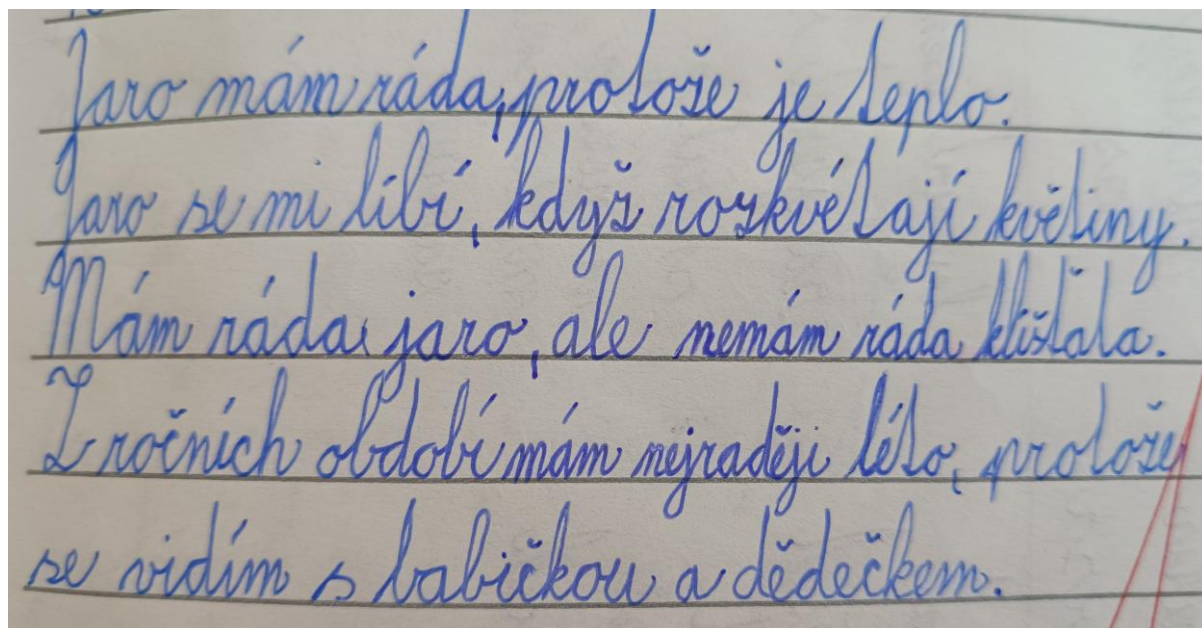 Jaro mám ráda, protože je teplo.
Jaro se mi líbí, když rozkvétají květiny.
Mám ráda jaro, ale nemám ráda klíšťata.
Z ročních období mám nejraději léto, protože
se vidím s babičkou a dědečkem.